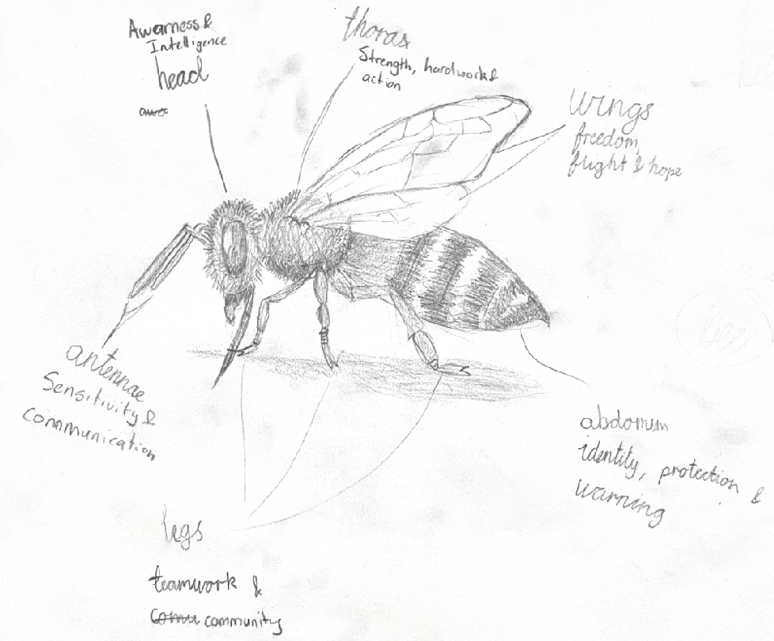 Awarness &
Intelligence
head
awe
thorax
Strength, hardwork &
action
wings
freedom,
flight & hope
antennae
Sensitivity &
communication
abdomen
identity, protection &
warning
legs
teamwork &
comu community